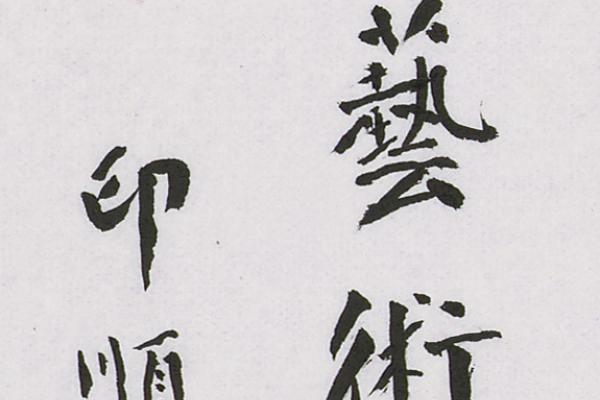 藝術
印順